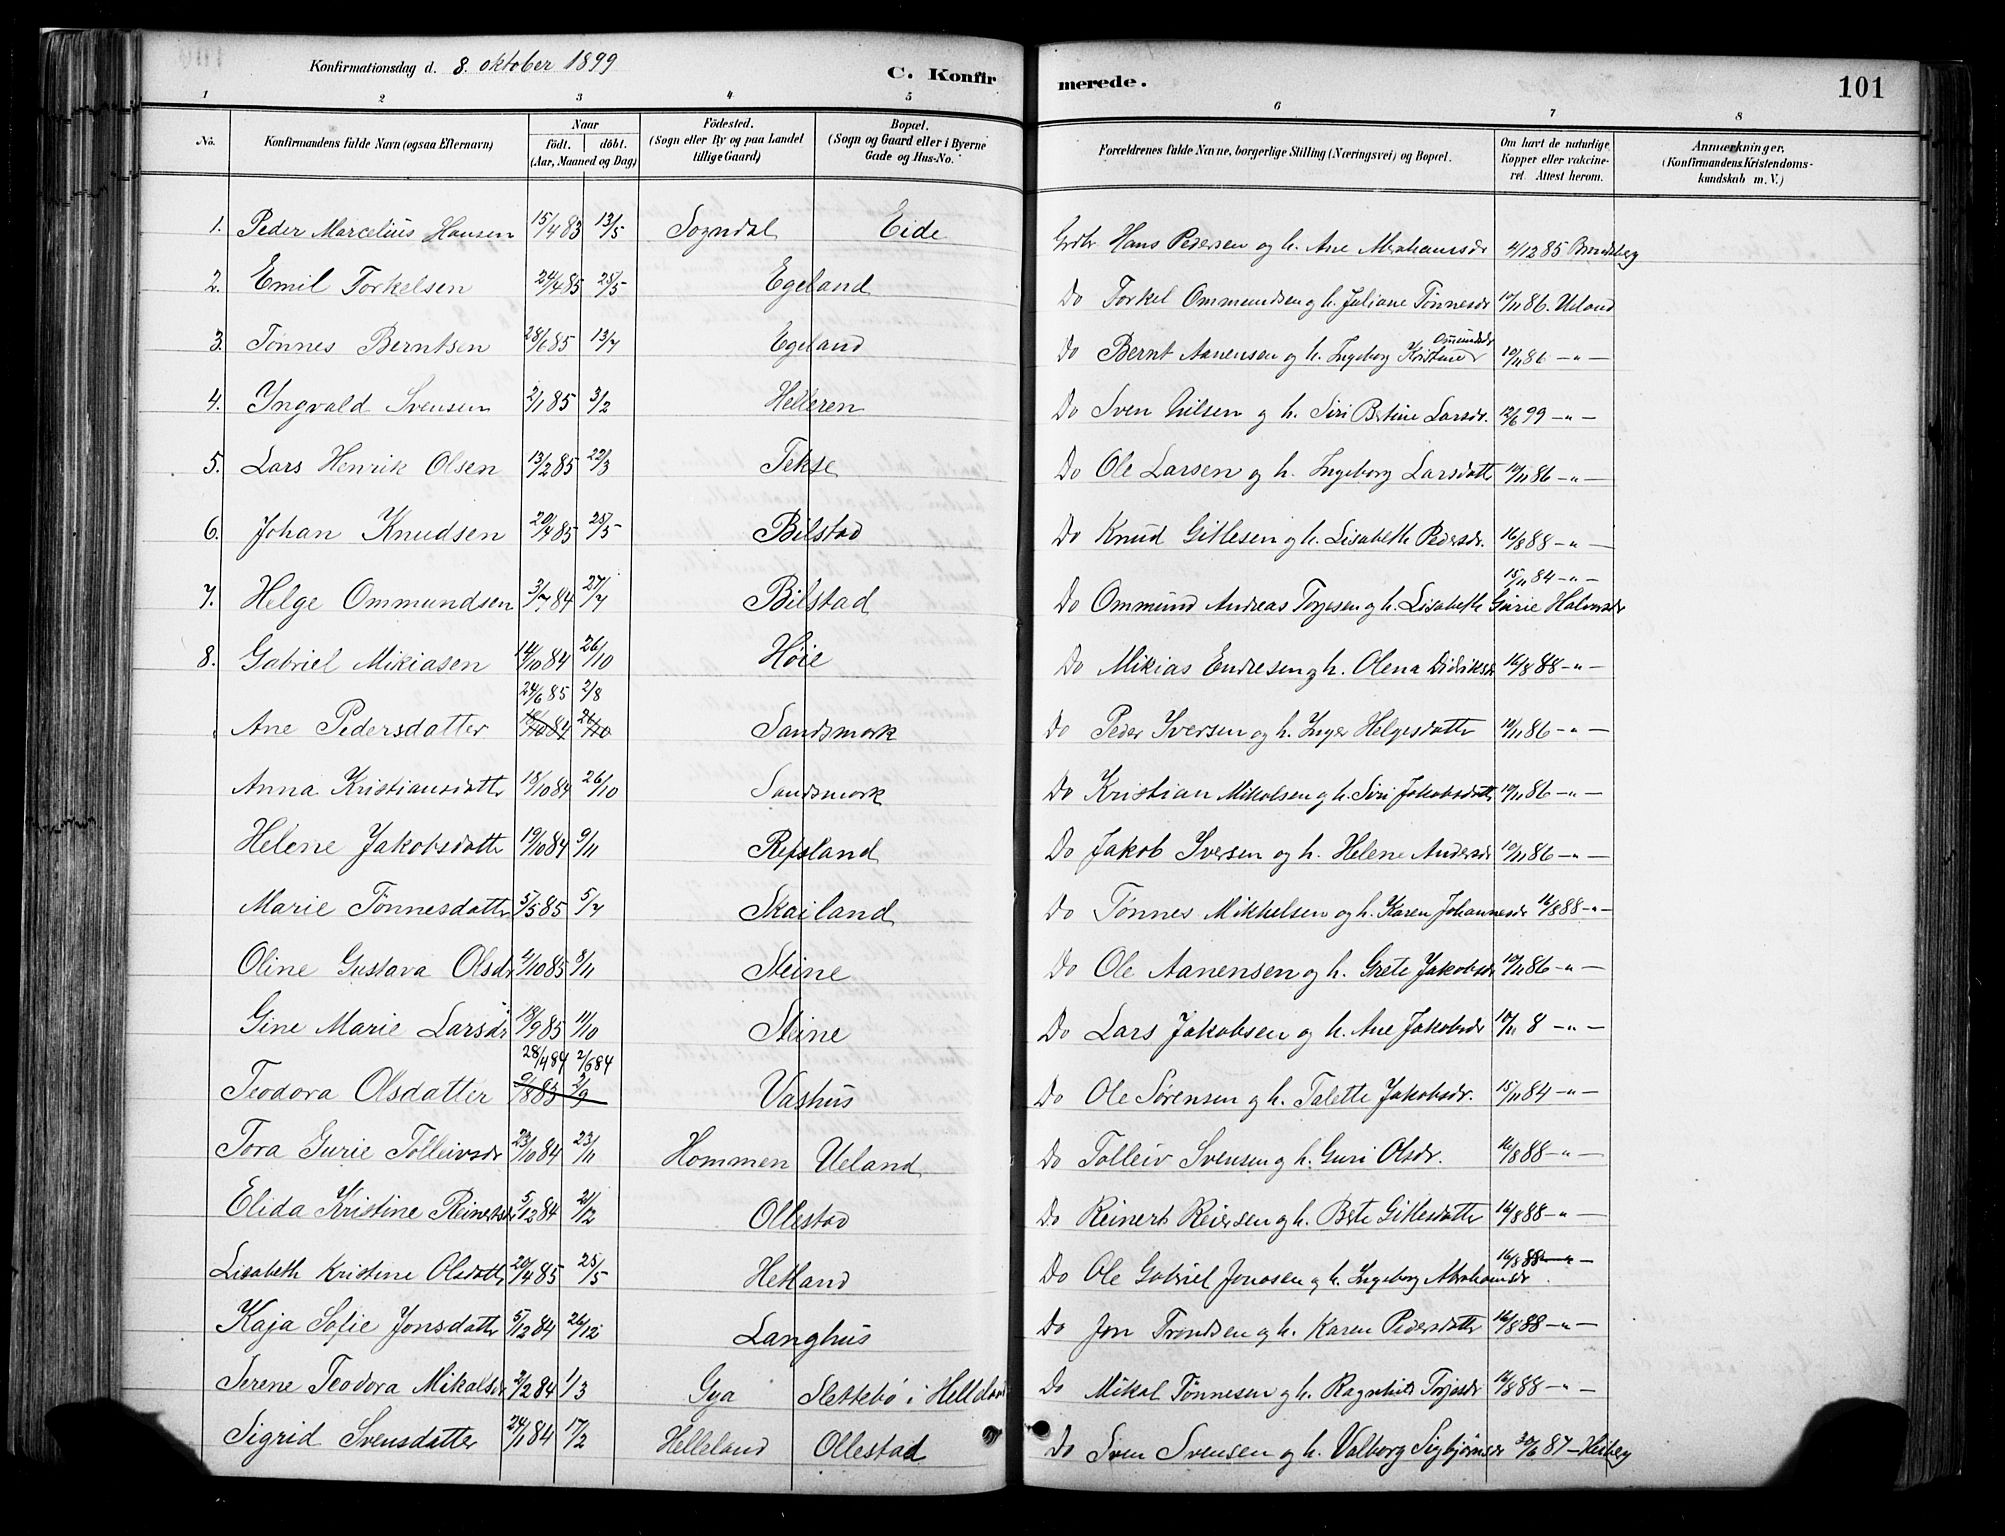 Konfirmationsdag d. 8. oktober 1899
C. Konfirmerede.
101
1 2 3 4 5 6 7 8
No. Konfirmandens fulde Navn (ogsaa Efternavn) Naar födt. döbt. (Aar, Maaned og Dag) Födested. (Sogn eller By og paa Landet tillige Gaard) Bopæl. (Sogn og Gaard eller i Byerne Gade og Hus-No. Forœldrenes fulde Navne, borgerlige Stilling (Næringsvei) og Bopæl. Om havt de naturlige Kopper eller vakcineret. Attest herom. Anmærkninger. (Konfirmandens Kristendomskundskab m. V.)
1. Peder Marcelius Hansen 15/4 83 13/5 Sogndal Eide Grdbr Hans Pedersen og h. Ane Abrahamsdr 4/12 85
2. Emil Torkelsen 24/4 85 25/5 Egeland Do Torkel Ommundsen og h. Juliane Tønnesdr 10/11 86. Ueland
3. Tønnes Berntsen 28/6 85 13/7 Egeland Do Bernt Aanensen og h. Ingeborg Kristine Omundsdr 10/11 86 -"-
4. Yngvald Svensen 2/1 85 3/2 Helleren Do Sven Nilsen og h. Siri Bertine Larsdr. 12/6 99 -"-
5. Lars Henrik Olsen 13/2 85 22/3 Tekse Do Ole Larsen og h. Ingeborg Larsdattr 10/11 86 -"-
6. Johan Knudsen 20/4 85 25/5 Bilstad Do Knud Gitlesen og h. Lisabeth Pedersdr. 16/8 88 -"-
7. Helge Ommundsen 3/7 84 27/7 Bilstad Do Ommund Andreas Torjesen og h. Lisabeth Gurie Halvorsdr 15/11 84 -"-
8. Gabriel Mikiasen 14/10 84 26/10 Høie Do Mikias Endresen og h. Olena Didriksdr 16/8 88 -"-
24/6 85 2/8
Ane Pedersdatter 18/10 84 26/10 Sandsmork Do Peder Iversen og h. Inger Helgesdatter 10/11 86 -"-
Anna Kristiansdattr 18/10 84 26/10 Sandsmork Do Kristian Mikalsen og h. Siri Jakobsdattr 10/11 86 -"-
Helene Jakobsdattr 19/10 84 9/11 Repsland Do Jakob Iversen og h. Helene Andersdr 10/11 86 -"-
Marie Tønnesdattr 3/5 85 5/7 Skailand Do Tønnes Mikkelsen og h. Karen Johannesdr 16/8 88 -"-
Oline Gustava Olsdr 2/10 85 8/11 Steine Do Ole Aanensen og h. Grete Jakobsdr 10/11 86 -"-
Gine Marie Larsdr 18/9 85 11/10 Steine Do Lars Jakobsen og h. Ane Jakobsdr 10/11 8 -"-
28/4 84 2/6 84
Teodora Olsdatter 9/8 85 2/9 Vashus Do Ole Sørensen og h. Talette Jakobsdr. 15/11 84 -"-
Tora Gurie Tolleivsdr 23/10 84 23/11 Hommen Ueland Do Tolleiv Svensen og h. Guri Olsdr. 16/8 88 -"-
Elida Kristine Reinertsdr 5/12 84 21/12 Ollestad Do Reinert Reiersen og h. Berte Gitlesdattr 16/8 88 -"-
Lisabeth Kristine Olsdattr 20/4 85 25/5 Hetland Do Ole Gabriel Jonasen og h. Ingeborg Abrahamsdr 16/8 88 -"-
Kaja Sofie Jonsdattr 5/12 84 26/12 Langhus Do Jon Trondsen og h. Karen Pedersdattr 16/8 88 -"-
Serene Teodora Mikalsdr 2/2 84 1/3 Gya Slettebø i Helleland Do Mikal Tønnesen og h. Ragnhild Torjesdr 16/8 88 -"-
Sigrid Svensdatter 24/1 84 17/2 Helleland Ollestad Do Sven Svensen og h. Valborg Sigbjørnsdr 30/6 87 -